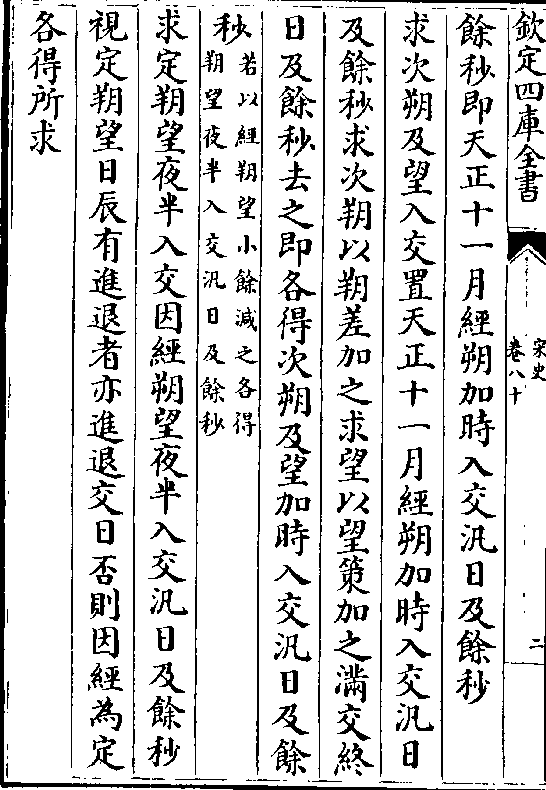 欽定四庫全書
宋史
卷八十
二
餘秒即天正十一月經朔加時入交汎日及餘秒
求次朔及望入交置天正十一月經朔加時入交汎日
及餘秒求次朔以朔差加之求望以望策加之滿交終
日及餘秒去之即各得次朔及望加時入交汎日及餘
秒
若以經朔望小餘減之各得
朔望夜半入交汎日及餘秒
求定朔望夜半入交因經朔望夜半入交汎日及餘秒
視定朔望日辰有進退者亦進退交日否則因經為定
各得所求